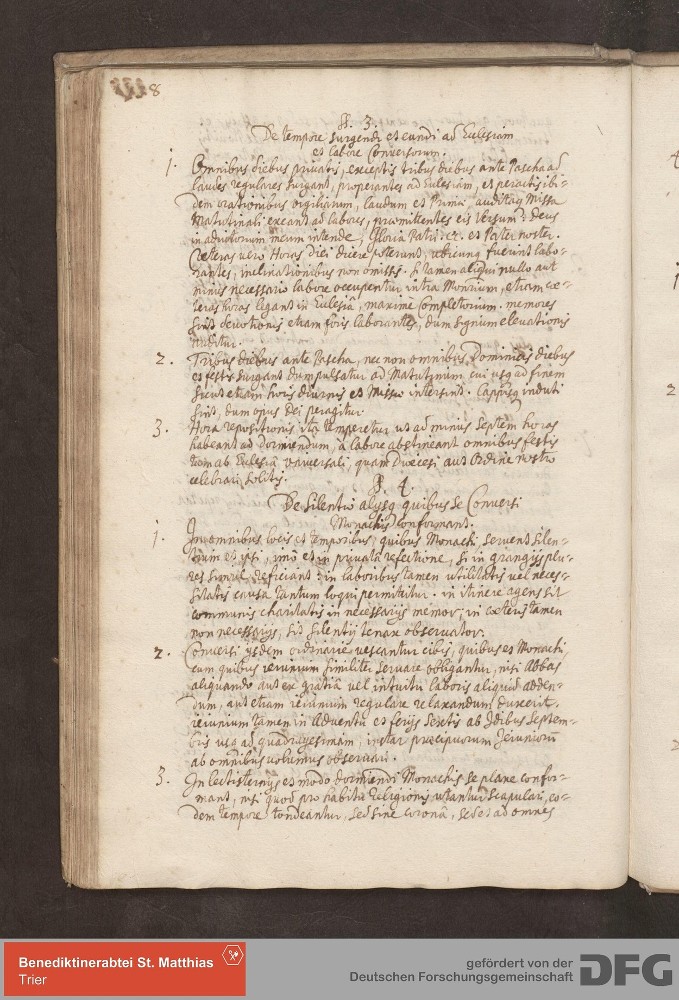 8
§. 3.
De tempore surgendi et eundi ad Ecclesiam
et labore Conversorum.
1. Omnibus diebus privatis, exceptis tribus diebus ante Pascha ad
laudes regulares surgant, properantes ad Ecclesiam, et peractis ibi-
dem orationibus vigiliarum, laudum et Primæ, auditaq Missa
Matutinali exeant ad labores, præmittentes eis Versum: Deus
in adiutorium meum intende, Gloria Patri: etc. et Pater noster.
Cæteras vero Horas diei dicere poterunt, ubicunq fuerint labo-
rantes, inclinationibus non omissis. Si tamen aliqui nullo aut
minus necessario labore occupentur intra Monrium, etiam cæ-
teras horas legant in Ecclesiâ, maxime Completorium. memores
sint devotionis etiam foris laborantes, dum signum elevationis
auditur.
2. Tribus diebus ante Pascha, nec non omnibus Dominicis diebus
et festis surgant dum pulsatur ad Matutinum cui usq ad finem
sicut etiam horis diurnis et Missæ intersint. Cappisq induti
sint, dum opus Dei peragitur.
3. Hora repositionis ita temperetur ut ad minus septem horas
habeant ad dormiendum, a labore abstineant omnibus festis
tam ab Ecclesiâ universali, quam Diœcesi aut Ordine nostro
celebrari solitis.
§. 4.
De Silentio alijsq quibus se Conversi
Monachis conformant.
1. In omnibus locis et temporibus, quibus Monachi, servent silen-
tium et ipsi, imò et in privatâ refectione, si in grangijs plu-
res simul reficiant: in laboribus tamen utilitatis vel neces-
sitatis causa tantum loqui permittitur. in itinere agens sit
communis charitatis in necessarijs memor, in cæteris tamen
non necessarijs, sit silentij tenax observator.
2. Conversi ijsdem ordinarie vescantur cibis, quibus et Monachi,
cum quibus ieiunium similiter servare obligantur, nisi Abbas
aliquando aut ex gratiâ vel intuitu laboris aliquid adden-
dum, aut etiam ieiunium regulare relaxandum duxerit.
ieiunium tamen in Adventu et ferijs sextis ab Idibus Septem-
bris usq ad quadragesimam, instar præcipuorum Jeiuniorū
ab omnibus volumus observari.
3. In lectisternijs et modo dormiendi Monachis se plane confor-
mant, nisi quod pro habitu Religionis utantur scapulari, eo-
dem tempore tondeantur, sed sine coronâ, sed et ad omnes
Benediktinerabtei St. Matthias
Trier
gefördert von der
Deutschen Forschungsgemeinschaft
DFG